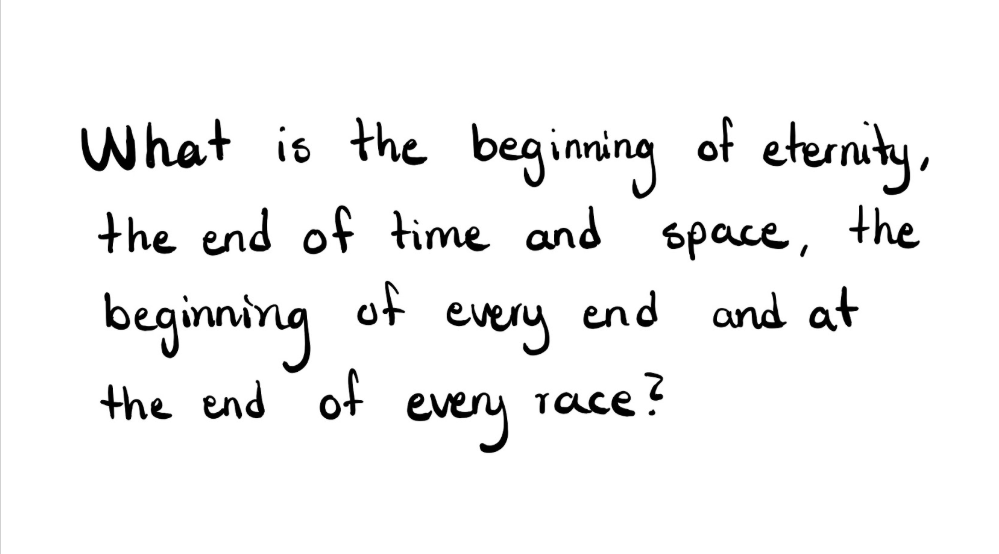 What is the beginning of eternity,
the end of time and space, the
beginning of every end and at
the end of every race?